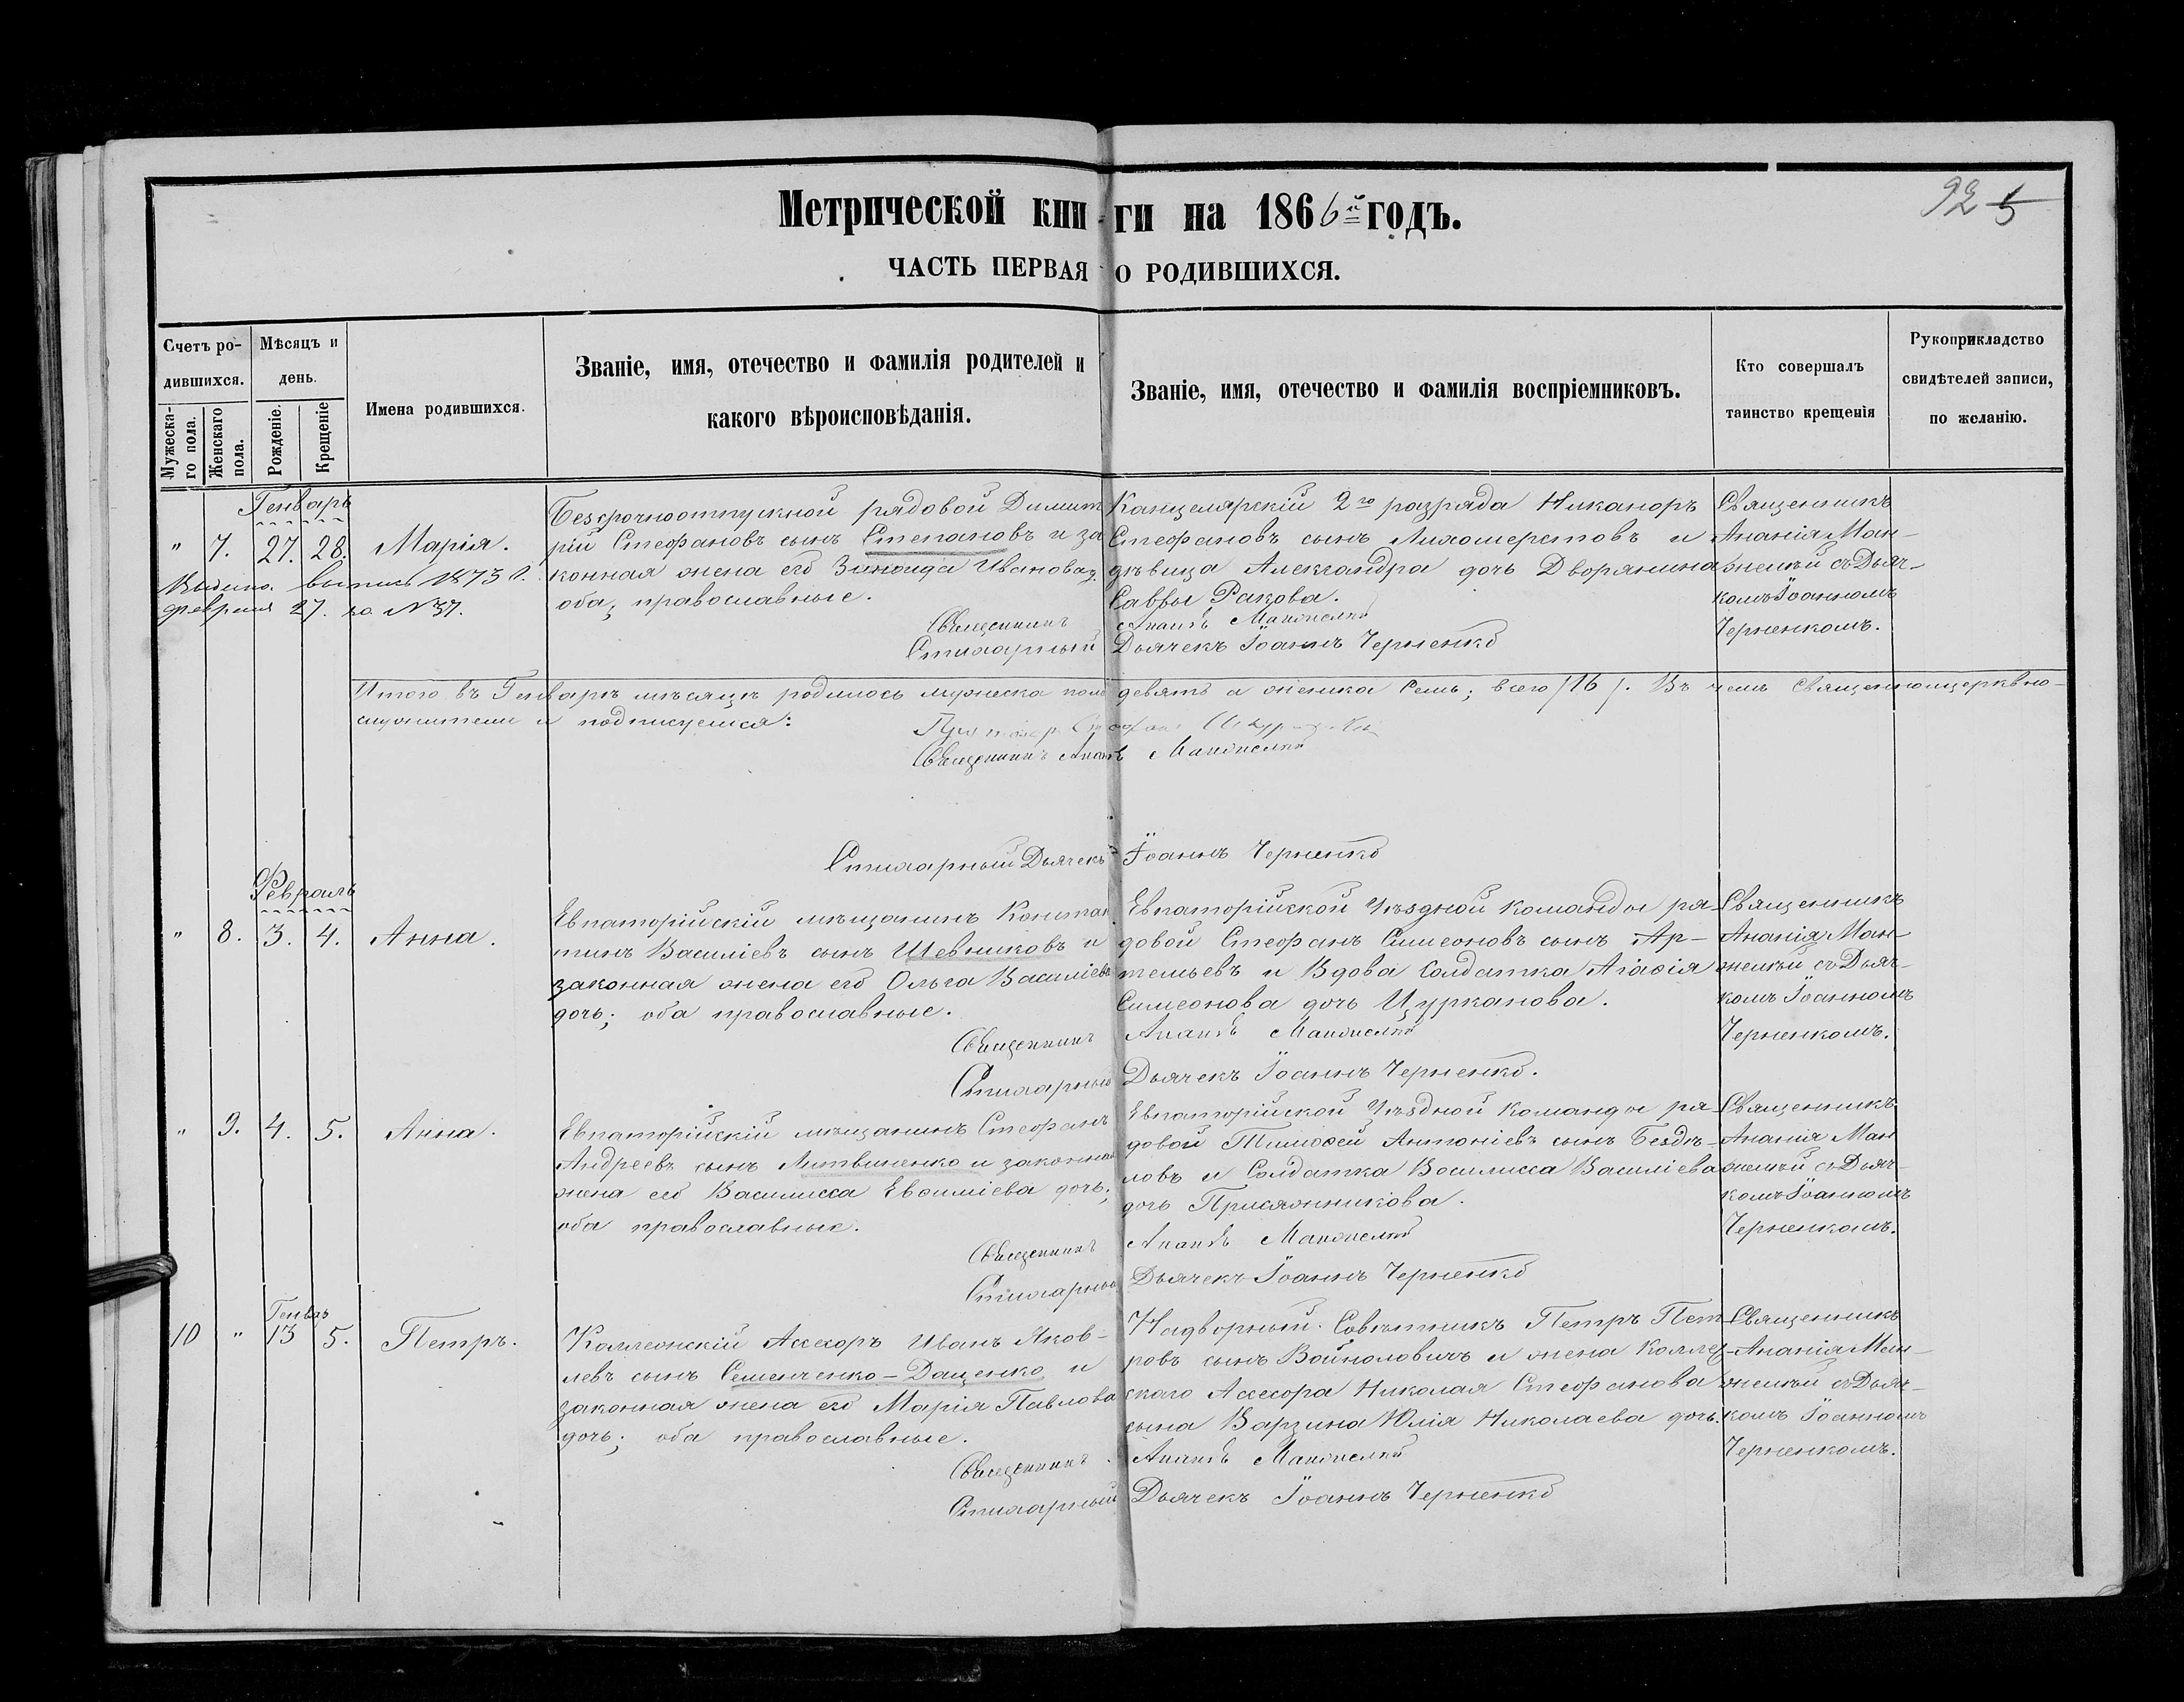 92 5
Метрической книги на 1866й годъ.
ЧАСТЬ ПЕРВАЯ О РОДИВШИХСЯ.
Счетъ ро-
дившихся.
Мужеска-
го пола.
Женскаго
пола.
Мѣсяцъ и
день.
Рожденіе.
Крещеніе
Имена родившихся.
Званіе, имя, отечество и фамилія родителей и
какого вѣроисповѣданія.
Званіе, имя, отечество и фамилія воспріемниковъ.
Кто совершалъ
таинство крещенія
Рукоприкладство
свидѣтелей записи,
по желанію.
Генварь
" 7. 27. 28. Марія.
выпись 1873 г.
Февраля 27. за № 37.
Безсрочноотпускной рядовой Димит
рій Стефановъ сынъ Степановъ и за
конная жена его Зинаида Иванова;
оба православные.
Канцелярскій 2го разряда Никаноръ
Стефановъ сынъ Лихошерстовъ и
дѣвица Александра дочь Дворянина
Саввы Ракова.
Священникъ
Ананія Ман-
желѣй съ Дьяч-
комъ Іоанномъ
Черненкомъ.
Священникъ Ананія Манжелѣй
Стихарный Дьячекъ Іоаннъ Черненко
Итого въ Генварѣ мѣсяцѣ родилось мужеска пола девять а женска семь; всего /16/. Въ чемъ Священноцерквно-
служители и подписуемся:
Священникъ Ананія Манжелѣй
Стихарный Дьячекъ Іоаннъ Черненко
Февраль
" 8. 3. 4. Анна.
Евпаторійскій мѣщанинъ Констан
тинъ Василіевъ сынъ Шевниковъ и
законная жена его Ольга Василіева
дочь; оба православные.
Евпаторійской Уѣздной команды ря-
довой Стефанъ Симеоновъ сынъ Ар-
темьевъ и Вдова Солдатка Агафія
Симеонова дочь Цурканова.
Священникъ
Ананія Ман-
желѣй съ Дьяч-
комъ Іоанномъ
Черненкомъ.
Священникъ Ананія Манжелѣй
Стихарный Дьячекъ Іоаннъ Черненко.
" 9. 4. 5. Анна.
Евпаторійскій мѣщанинъ Стефанъ
Андреевъ сынъ Литвиненко и законная
жена его Василисса Евфиміева дочь;
оба православные.
Евпаторійской Уѣздной команды ря-
довой Тимофей Антоніевъ сынъ Бездѣ-
ловъ и Солдатка Василисса Василіева
дочь Присяжникова.
Священникъ
Ананія Ман
желѣй съ Дьяч-
комъ Іоанномъ
Черненкомъ.
Священникъ Ананія Манжелѣй
Стихарный Дьячекъ Іоаннъ Черненко
Генвар
10 " 13 5. Петръ.
Коллежскій Ассесоръ Иванъ Яков-
левъ сынъ Семенченко-Дащенко и
законная жена его Марія Павлова
дочь; оба православные.
Надворный Совѣтникъ Петръ Пет-
ровъ сынъ Войноловичъ и жена Коллеж-
скаго Ассесора Николая Стефанова
сына Варзина Юлія Николаева дочь.
Священникъ
Ананія Ман-
желѣй съ Дьяч-
комъ Іоанномъ
Черненкомъ.
Священникъ Ананія Манжелѣй
Стихарный Дьячекъ Іоаннъ Черненко